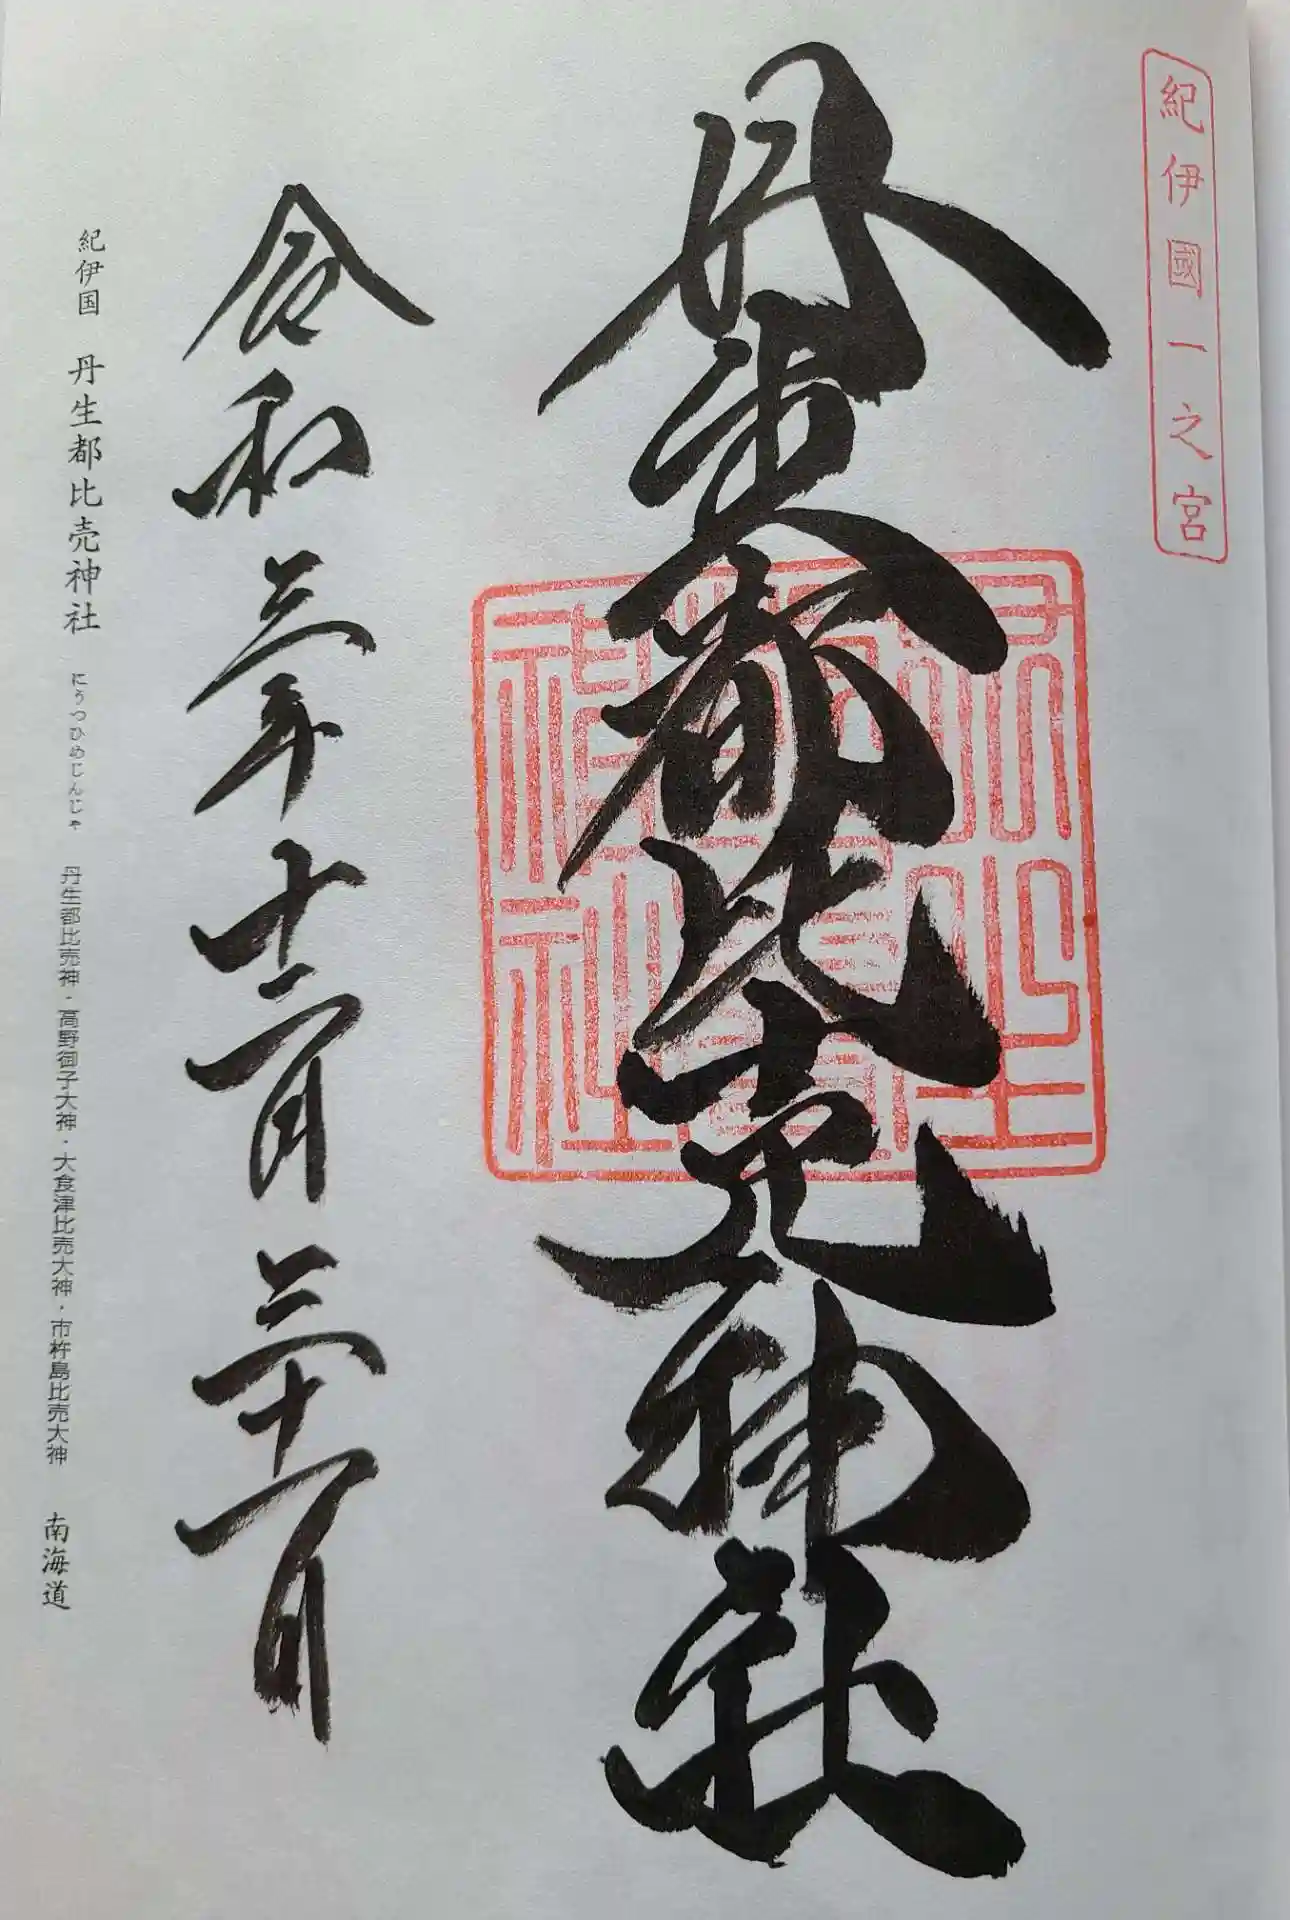 紀伊國一之宮
丹生都比売神社
令和三年十二月三十一日
紀伊国 丹生都比売神社 にうつひめじんじゃ 丹生都比売神・高野御子大神・大食津比売大神・市杵島比売大神 南海道